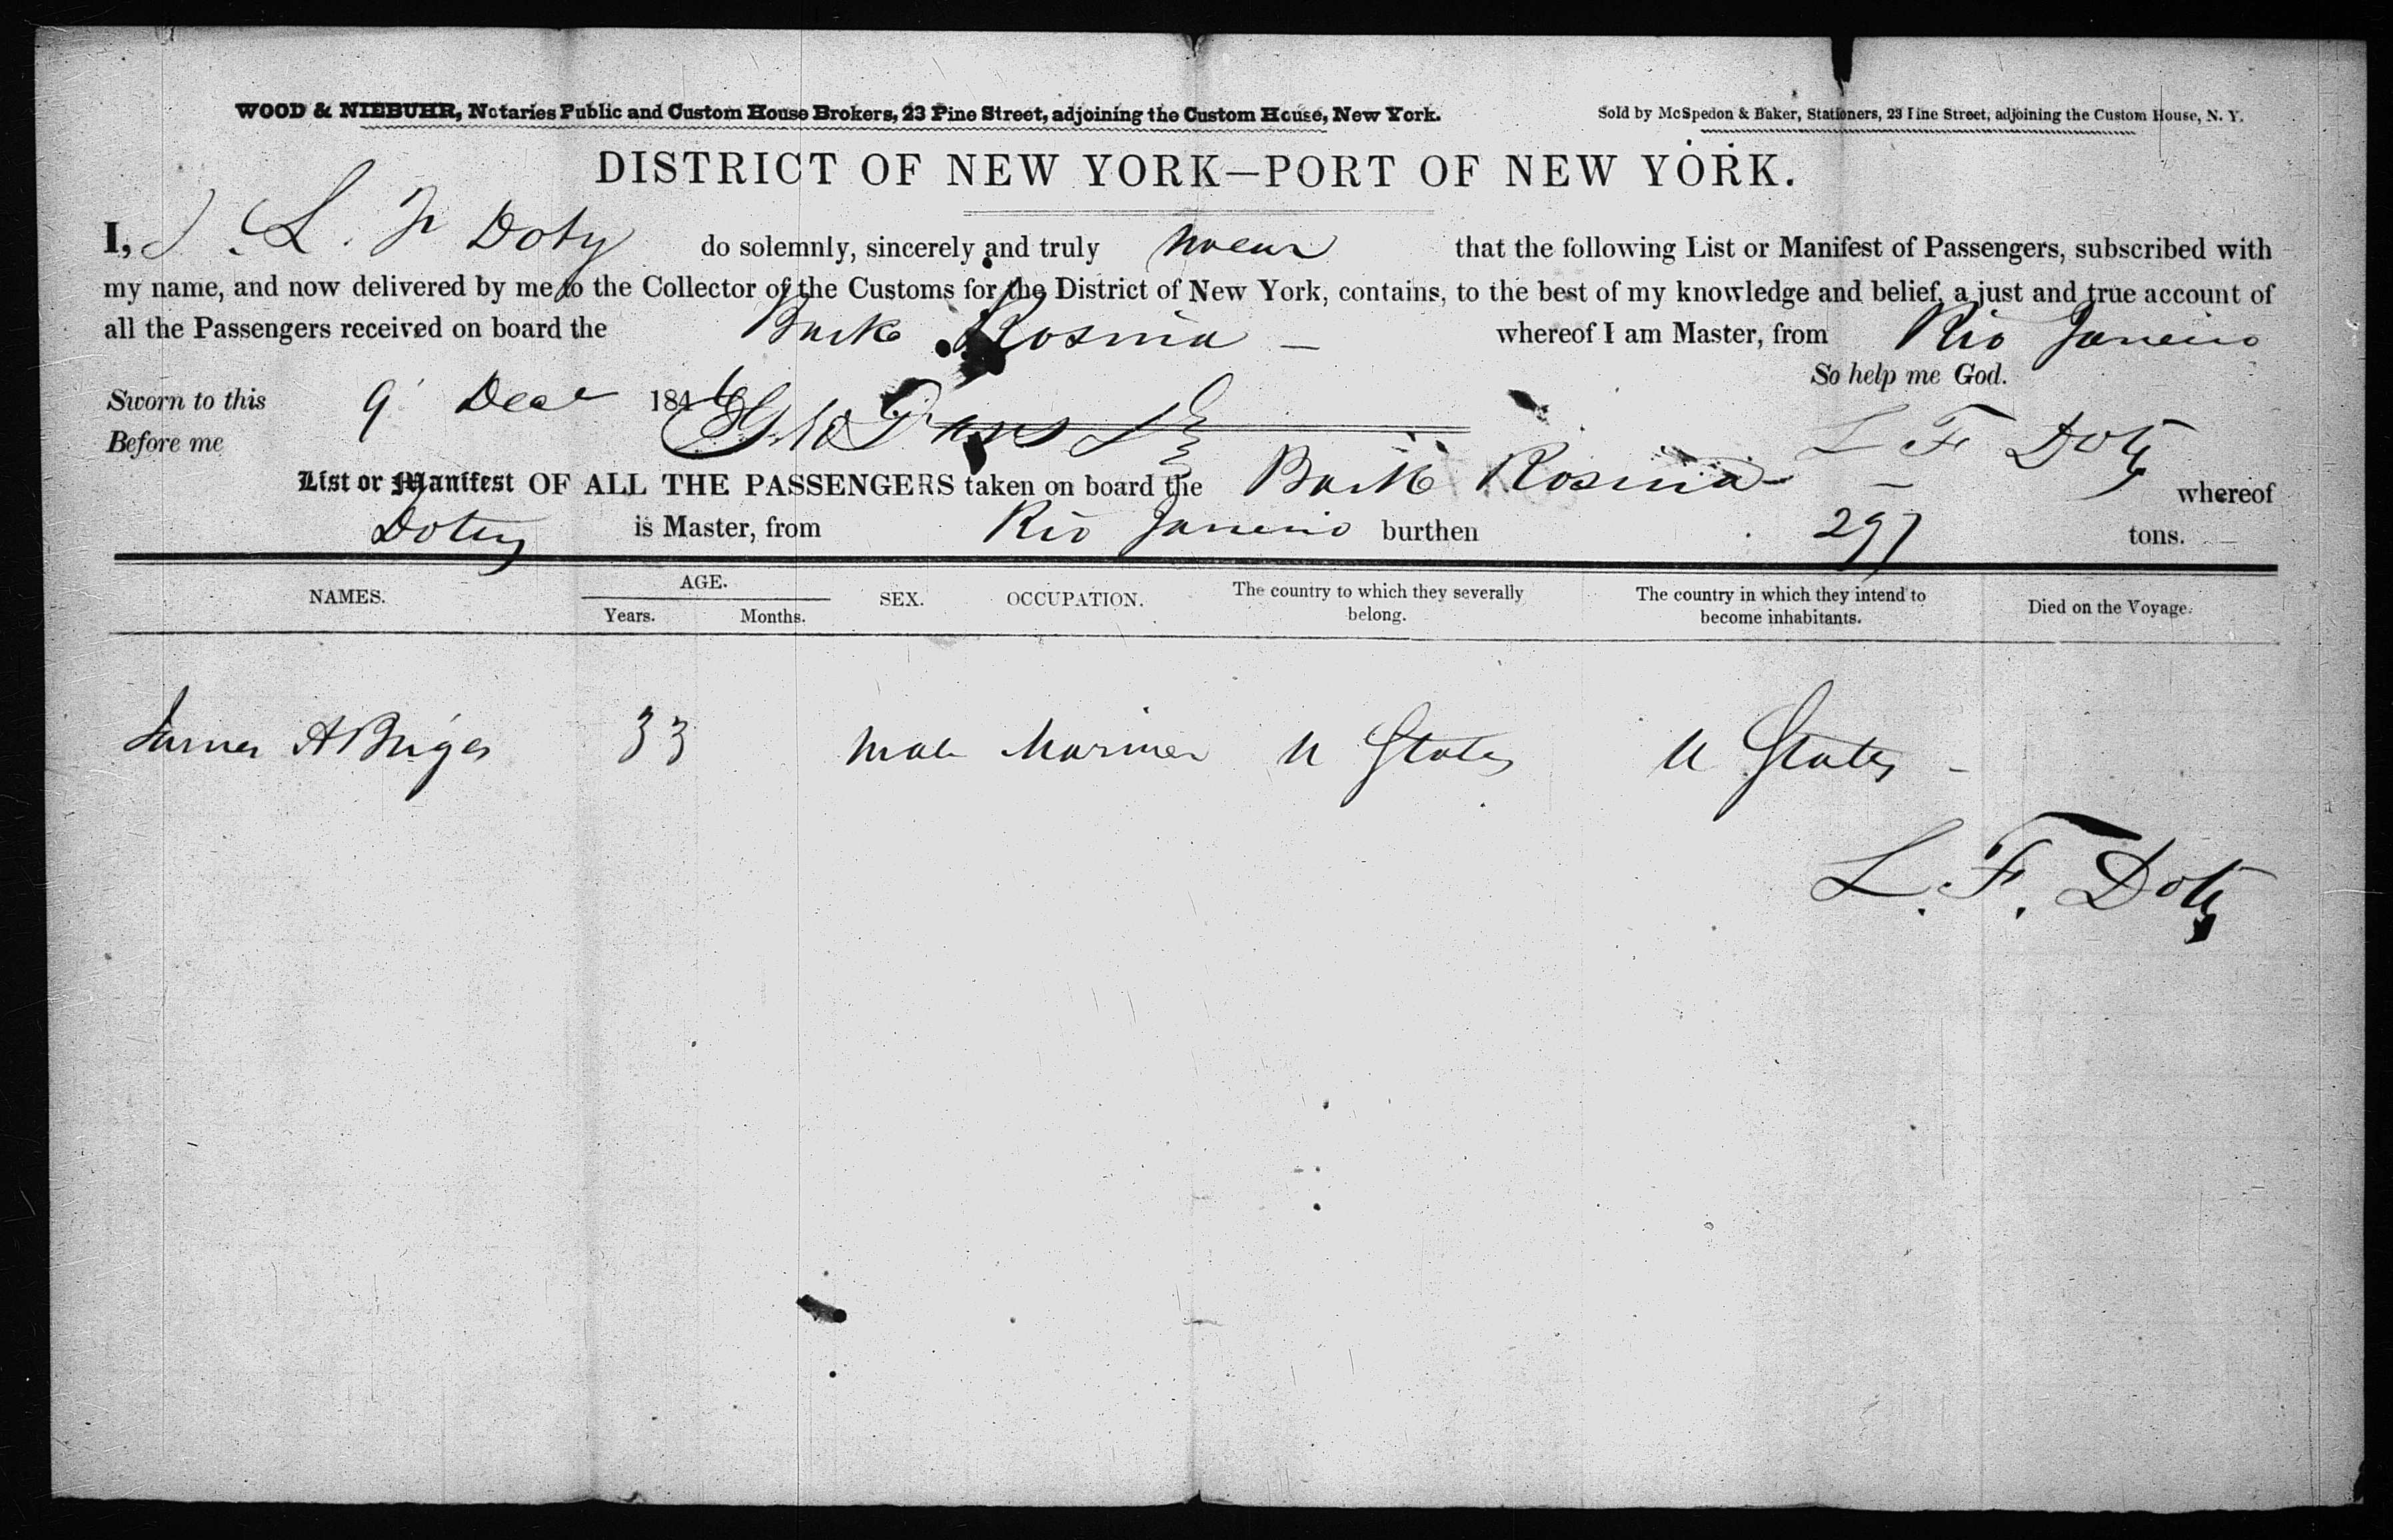 WOOD & NIEBUHR, Notaries Public and Custom House Brokers, 23 Pine Street, adjoining the Custom House, New York.
Sold by McSpedon & Baker, Stationers, 23 Pine Street, adjoining the Custom House, N. Y.
DISTRICT OF NEW YORK—PORT OF NEW YORK.
I, L. F Doty do solemnly, sincerely and truly swear that the following List or Manifest of Passengers, subscribed with
my name, and now delivered by me to the Collector of the Customs for the District of New York, contains, to the best of my knowledge and belief, a just and true account of
all the Passengers received on board the Bark Rosina — whereof I am Master, from Rio Janeiro
So help me God.
Sworn to this 9 Decr 1846
Before me L F Doty
List or Manifest OF ALL THE PASSENGERS taken on board the Bark Rosina — whereof
Doty is Master, from Rio Janeiro burthen 297 tons.
NAMES. AGE. SEX. OCCUPATION. The country to which they severally belong. The country in which they intend to become inhabitants. Died on the Voyage.
Years. Months.
James A Briges 33 Male Mariner U States U States -
L. F. Doty